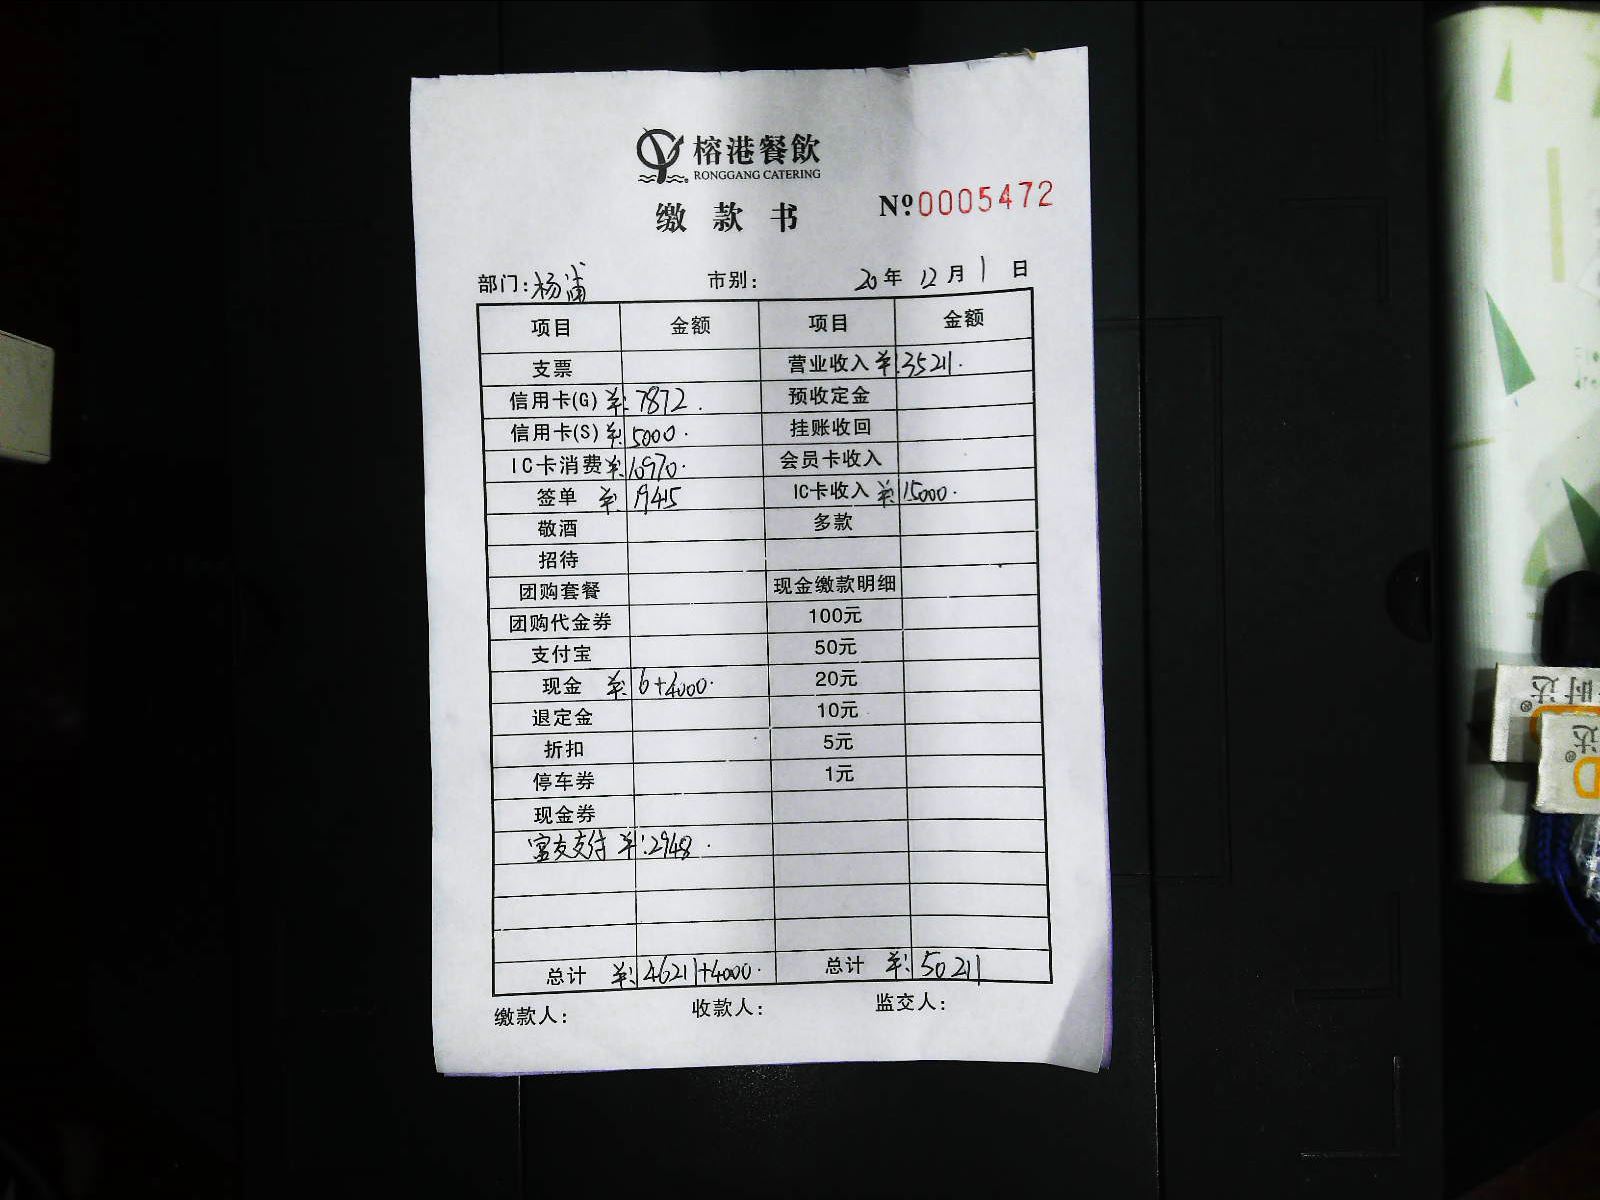 榕港餐飲
RONGGANG CATERING
缴款书
Nº0005472
部门:杨浦 市别: 20年 12月 1日
项目 金额 项目 金额
支票 营业收入 ¥:35211.
信用卡(G) ¥:7872. 预收定金
信用卡(S) ¥:5000. 挂账收回
IC卡消费 ¥:10970. 会员卡收入
签单 ¥:19415 IC卡收入 ¥:15000.
敬酒 多款
招待
团购套餐 现金缴款明细
团购代金券 100元
支付宝 50元
现金 ¥:6+4000. 20元
退定金 10元
折扣 5元
停车券 1元
现金券
富友支付 ¥:2948.
总计 ¥:46211+4000. 总计 ¥:50211
缴款人: 收款人: 监交人: